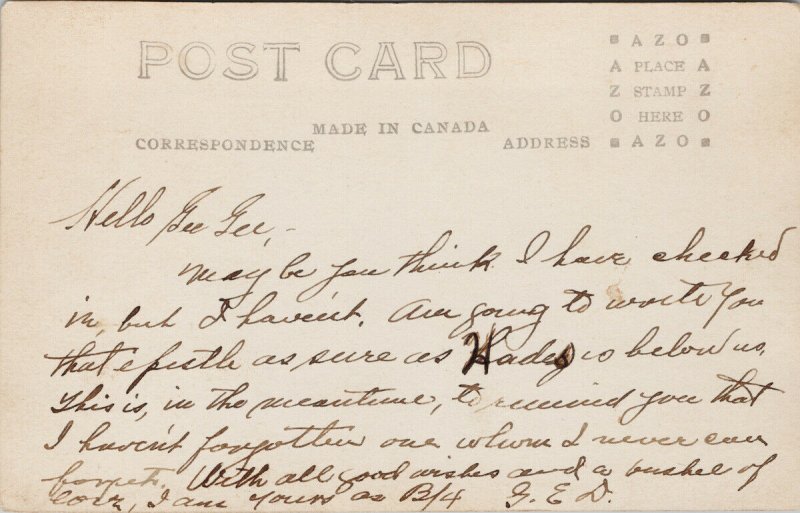 POST CARD
AZO
A PLACE A
Z STAMP Z
O HERE O
AZO
MADE IN CANADA
CORRESPONDENCE
ADDRESS
Hello Gee Gee, -
may be you think I have checked
in, but I haven't. Am going to write you
that epistle as sure as Hades is below us.
This is, in the meantime, to remind you that
I haven't forgotten one whom I never can
forget. With all good wishes and a bushel of
corn, I am Yours as B/4 G. E. D.